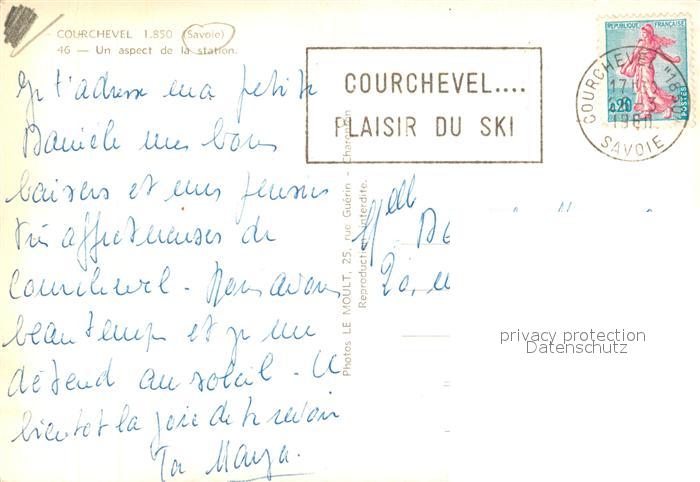 COURCHEVEL 1.850 (Savoie)
46 — Un aspect de la station.
Je t'adresse ma petite
Danièle mes bons
baisers et mes pensées
très affectueuses de
Courchevel - Nous avons
beau temps et je me
détend au soleil - A
bientot la joie de te revoir
Ta Manya.
Photos LE MOULT, 25, rue Guérin - Charenton
Reproduction interdite.
COURCHEVEL....
PLAISIR DU SKI
REPUBLIQUE FRANÇAISE
0,20
POSTES
COURCHEVEL "1850"
17H
-3
1960
SAVOIE
Mell
20,
privacy protection
Datenschutz